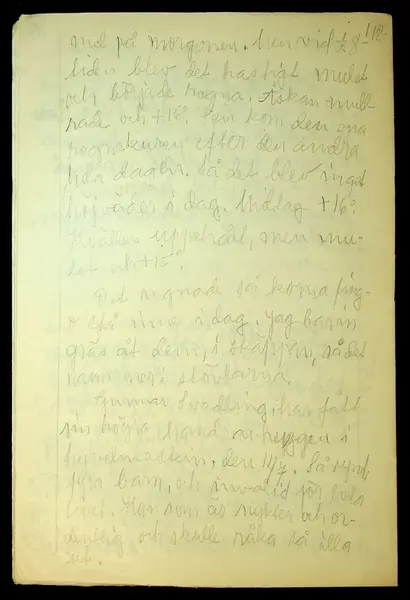 118.
ind på morgonen. Men vid ½ 8-
tiden blev det hastigt mulet
och började regna. Åskan mull-
rade och +16°. Sen kom den ena
regnskuren efter den andra
hela dagen. Så det blev inget
höjväder i dag. Middag +16°.
Kvällen uppehåll, men mu-
let och +15°.
Det regnade så korna fing-
o stå inne i dag. Jag bar in
gräs åt dem, i så det
Gunnar Svadling, har fått
sin högra hand avhuggen i
hyvelmaskin, den 11/7. Så synd,
fyra barn, och invalid för hela
livet. Han som är nykter och or-
dentlig och skulle råka så illa
ut.